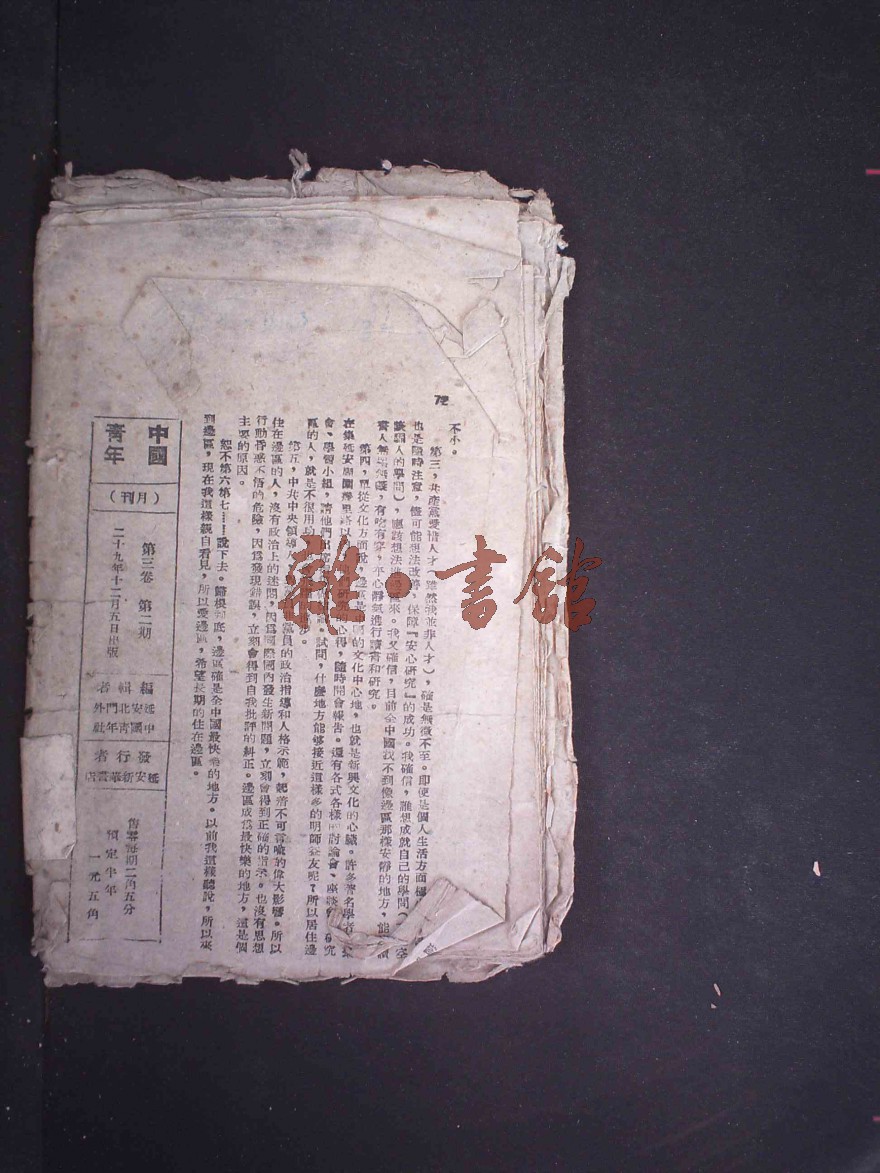 72
不小。
第三，共產黨愛惜人才（雖然我並非人才），確是無微不至。即使是個人生活方面
也是隨時注意，儘可能想法改善，保障『安心研究』的成功。我確信，誰想成就自己的學問（
談個人的學問），應該想法進邊區來。我又確信，目前全中國找不到像邊區那樣安靜的地方，能
書人無憂無慮，有吃有穿，平心靜氣進行讀書和研究。
第四，單從文化方面說，邊區是 的文化中心地，也就是新興文化的心臟。許多著名學者
在集延安周圍 里路以 研究 心得，隨時開會報告。還有各式各樣的討論會、座談會、研究
會、學習小組，請他們出席 。試問，什麼地方能够接近這樣多的明師益友呢？所以居住邊
區的人，就是不很用功 步。
第五，中共中央領導人 黨員的政治指導和人格示範，起着不可言喻的偉大影響。所以
住在邊區的人，沒有政治上的迷悶，因爲國際國內發生新問題，立刻會得到正確的指示。也沒有思想
行動昏惑不悟的危險，因爲發現錯誤，立刻會得到自我批評的糾正。邊區成爲最快樂的地方，這是個
主要的原因。
恕不第六第七……說下去。歸根到底，邊區確是全中國最快樂的地方。以前我這樣聽說，所以來
到邊區，現在我這樣親自看見，所以愛邊區，希望長期的住在邊區。
中國
青年
（月刊）
第三卷 第二期
二十九年十二月五日出版
編輯者
延安北門外
中國青年社
發行者
延安新華書店
售零每期二角五分
預定半年
一元五角
雜·書館